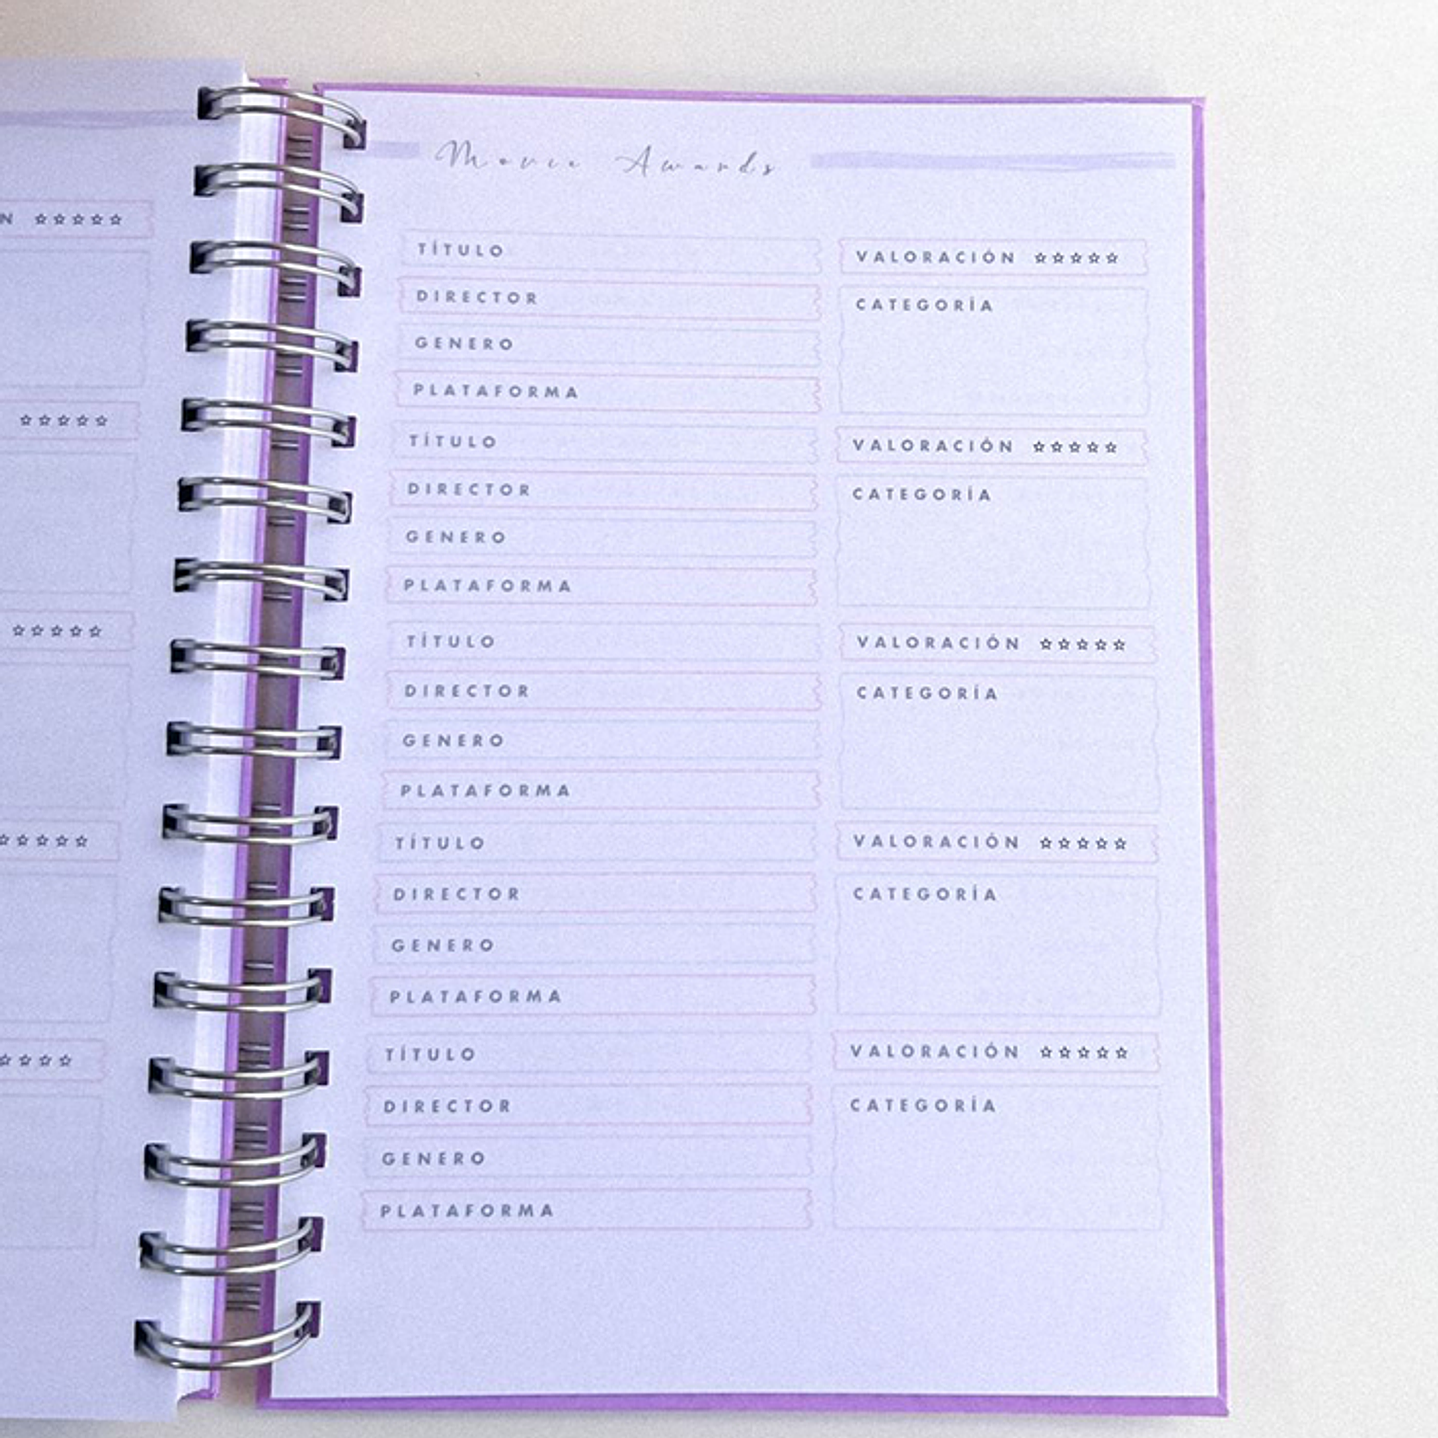 N ☆☆☆☆☆
☆☆☆☆☆
☆☆☆☆☆
☆☆☆☆☆
☆☆☆☆
Movie Awards
TÍTULO
VALORACIÓN ☆☆☆☆☆
DIRECTOR
CATEGORÍA
GENERO
PLATAFORMA
TÍTULO
VALORACIÓN ☆☆☆☆☆
DIRECTOR
CATEGORÍA
GENERO
PLATAFORMA
TÍTULO
VALORACIÓN ☆☆☆☆☆
DIRECTOR
CATEGORÍA
GENERO
PLATAFORMA
TÍTULO
VALORACIÓN ☆☆☆☆☆
DIRECTOR
CATEGORÍA
GENERO
PLATAFORMA
TÍTULO
VALORACIÓN ☆☆☆☆☆
DIRECTOR
CATEGORÍA
GENERO
PLATAFORMA